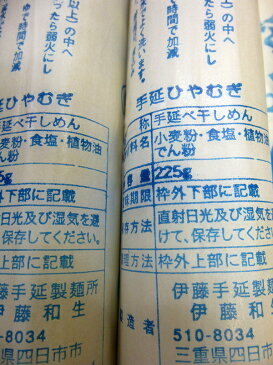 以上)の中へ
ったら弱火にし
ゆで時間で加減
手延ひやむぎ
手延べ干しめん
小麦粉・食塩・植物油
でん粉
枠外下部に記載
日光及び湿気を避
保存してください。
枠外上部に記載
伊藤手延製麺所
伊藤和生
510-8034
三重県四日市市
(以上)の中へ
ったら弱火にし
時間で加減
手延ひやむぎ
称 手延べ干しめん
料名 小麦粉・食塩・植物油
でん粉
容量 225g
味期限 枠外下部に記載
存方法 直射日光及び湿気を
けて、保存してください。
理方法 枠外上部に記載
造者 伊藤手延製
伊藤和生
510-8034
三重県四日市